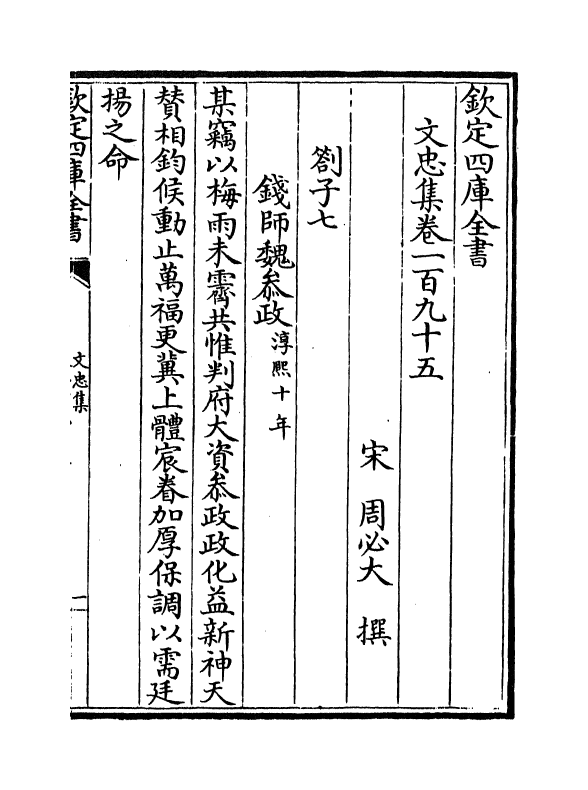 欽定四庫全書
文忠集卷一百九十五
宋 周必大 撰
劄子七
錢師魏叅政淳熙十年
某竊以梅雨未霽共惟判府大資叅政政化益新神天
賛相鈞候動止萬福更兾上體宸眷加厚保調以需廷
揚之命
欽定四庫全書
文忠集